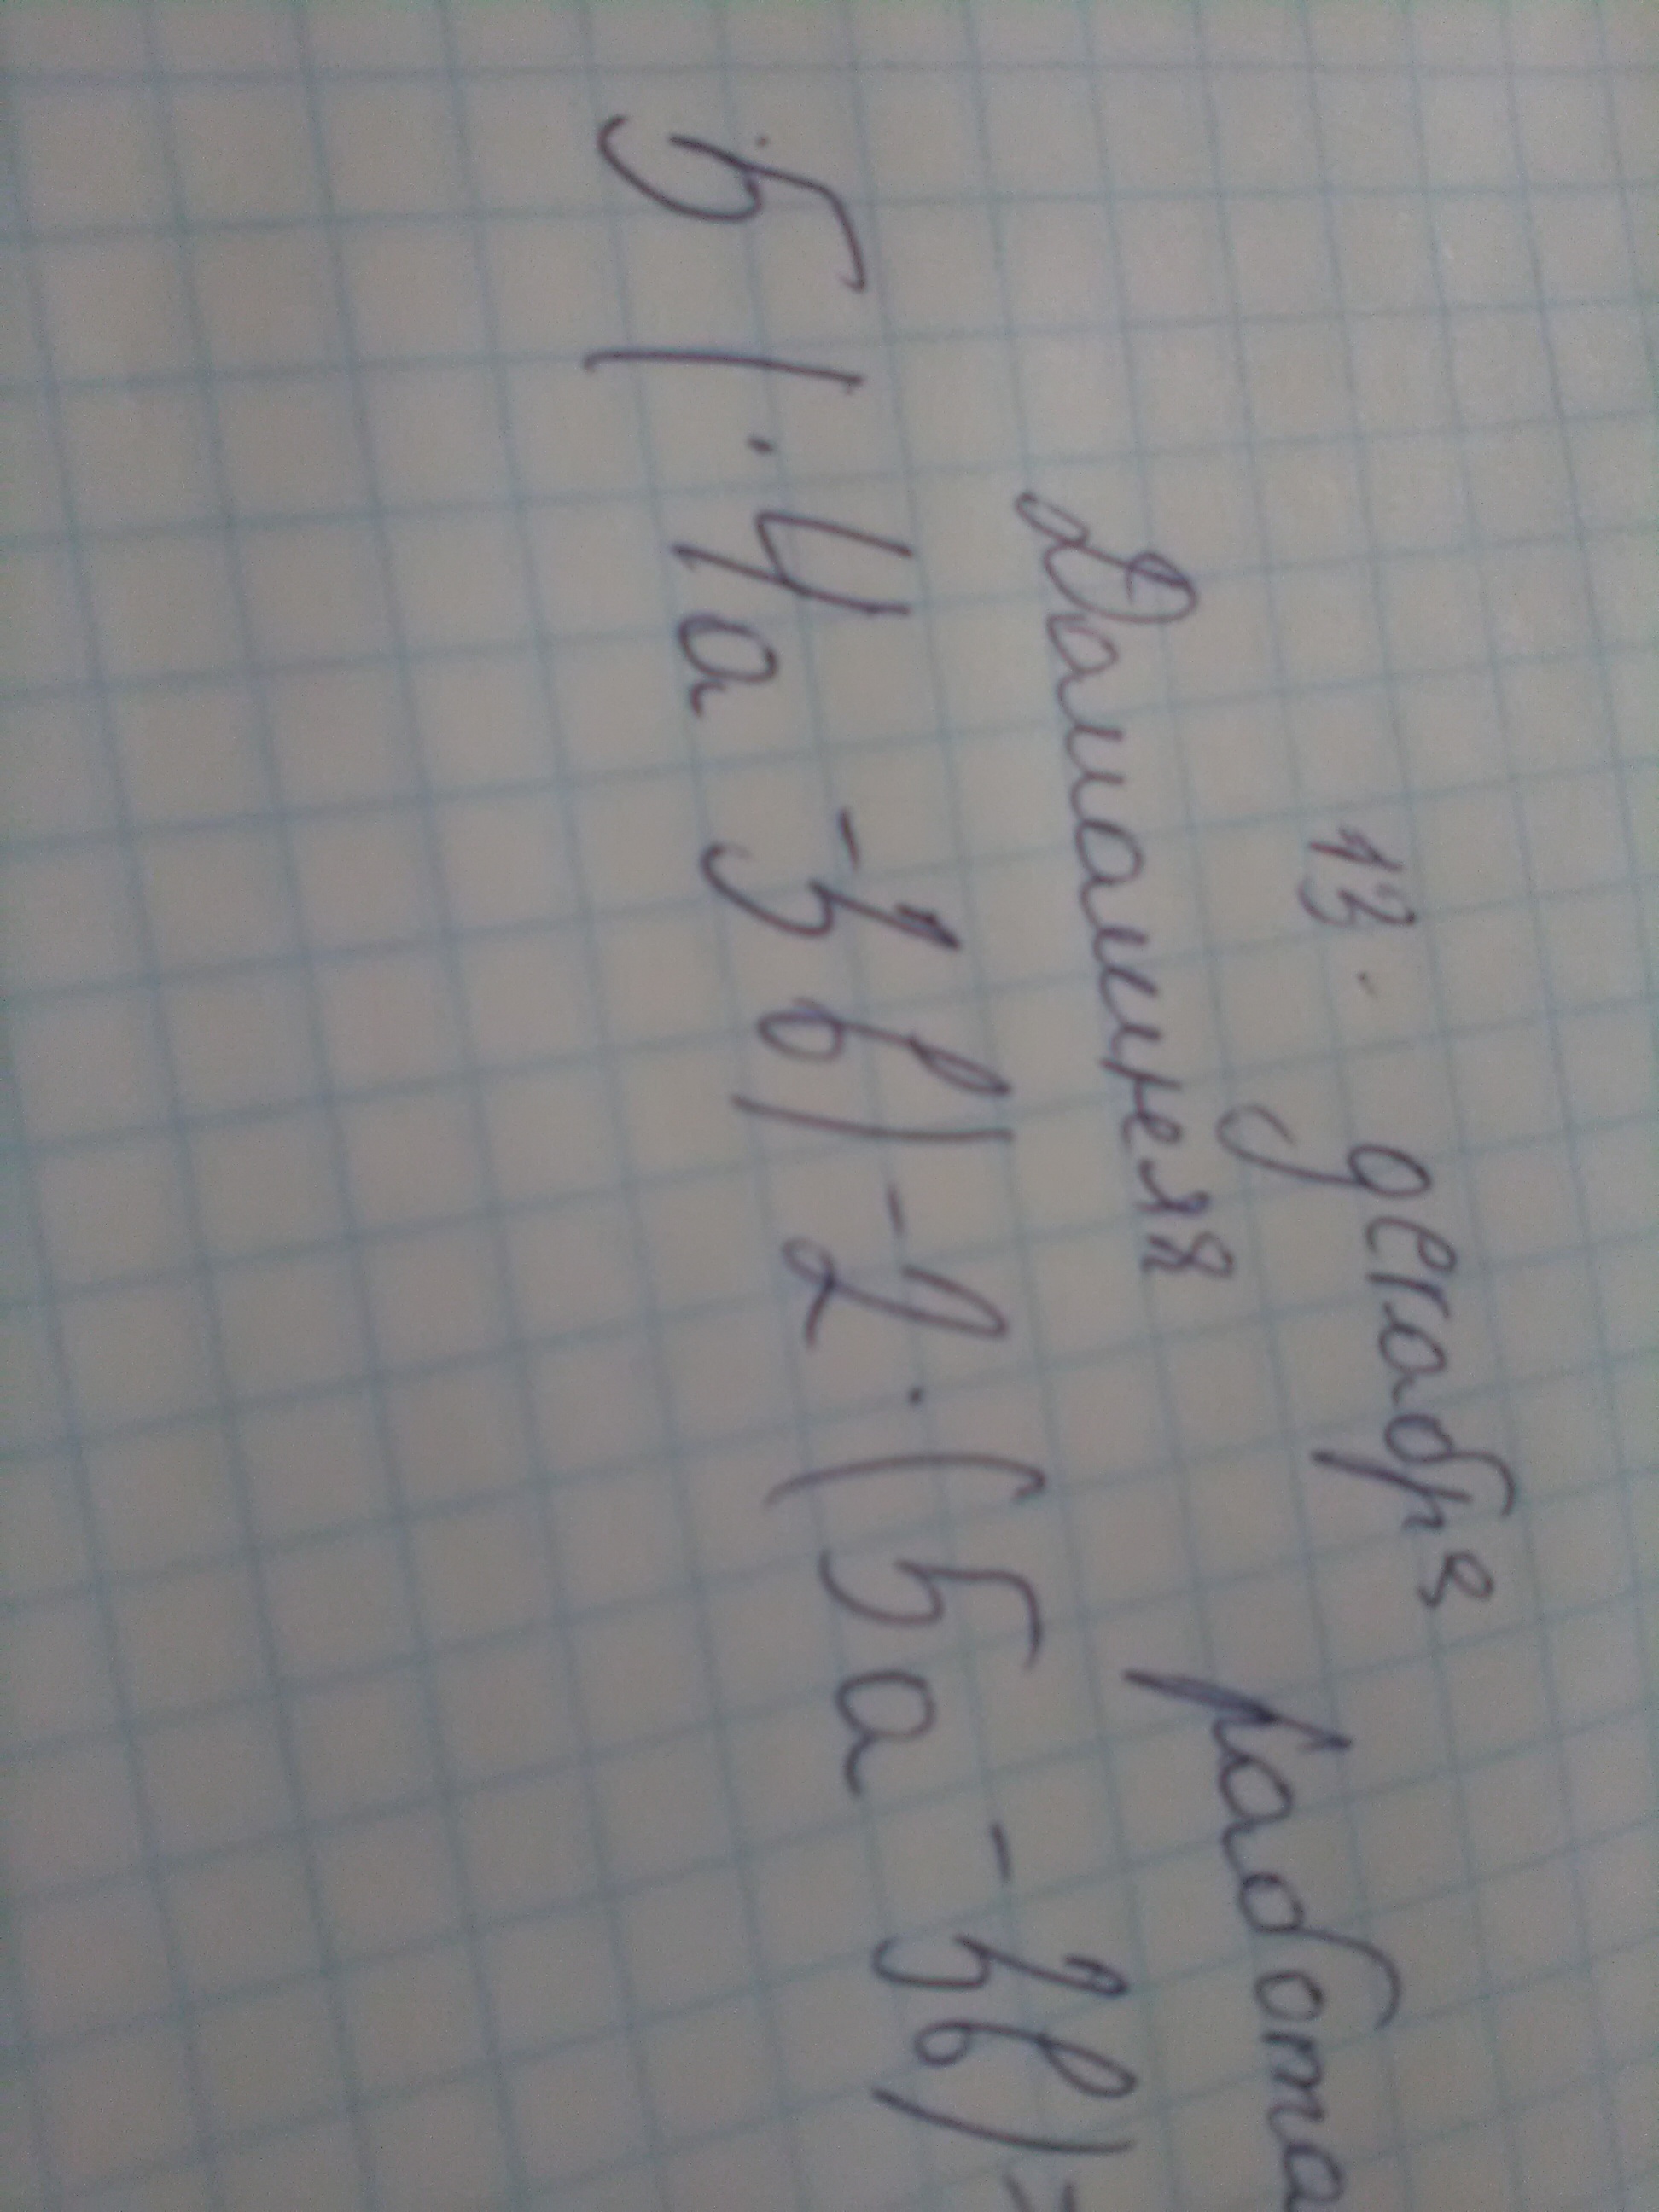 13. декабря
Домашнея работа
5(·4a - 3в) - 2·(5a - 3в) =